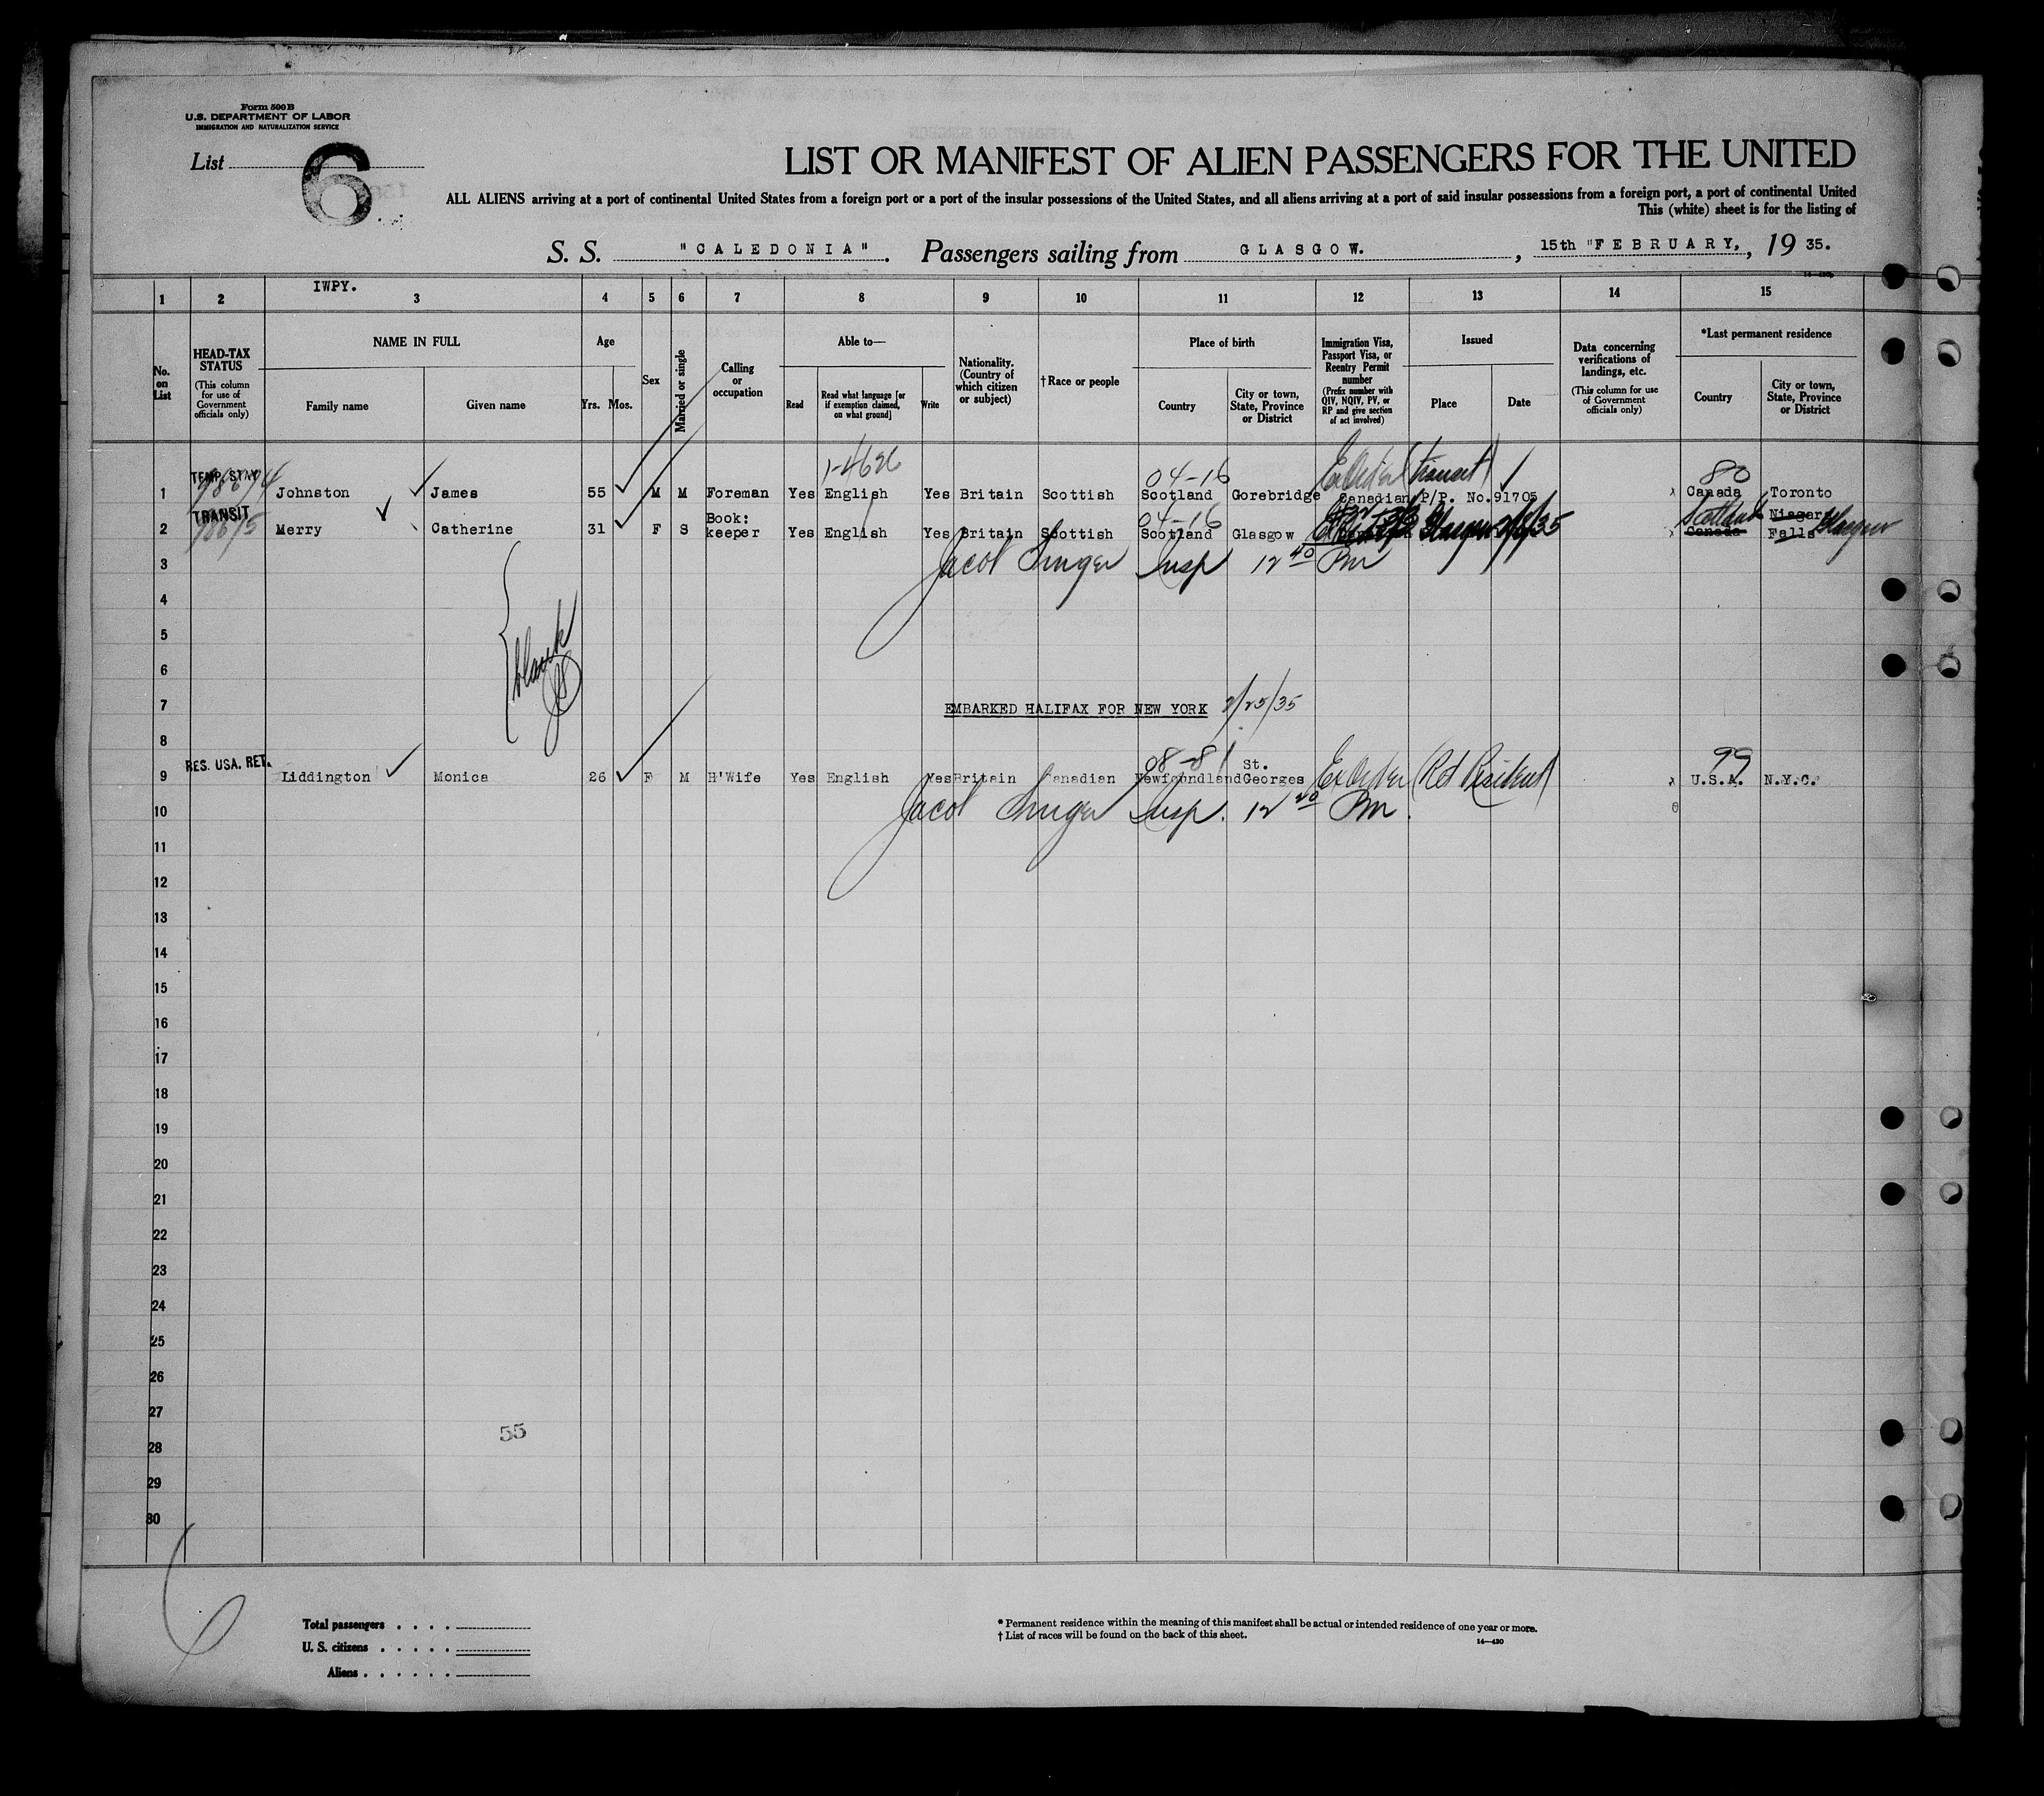 Form 500 B
U.S. DEPARTMENT OF LABOR
IMMIGRATION AND NATURALIZATION SERVICE
List 6
LIST OR MANIFEST OF ALIEN PASSENGERS FOR THE UNITED
ALL ALIENS arriving at a port of continental United States from a foreign port or a port of the insular possessions of the United States, and all aliens arriving at a port of said insular possessions from a foreign port, a port of continental United
This (white) sheet is for the listing of
S. S. "CALEDONIA". Passengers sailing from GLASGOW. , 15th "FEBRUARY, , 19 35.
IWPY.
1 2 3 4 5 6 7 8 9 10 11 12 13 14 15
No. on List
HEAD-TAX STATUS
(This column for use of Government officials only)
NAME IN FULL
Family name Given name
Age
Yrs. Mos.
Sex
Married or single
Calling or occupation
Able to—
Read
Read what language [or if exemption claimed, on what ground]
Write
Nationality. (Country of which citizen or subject)
†Race or people
Place of birth
Country
City or town, State, Province or District
Immigration Visa, Passport Visa, or Reentry Permit number
(Prefix number with QIV, NQIV, PV, or RP and give section of act involved)
Issued
Place Date
Data concerning verifications of landings, etc.
(This column for use of Government officials only)
*Last permanent residence
Country
City or town, State, Province or District
1-4626 04-16 Ex Order (Transit) 80
TEMP. STAY
1 98674 Johnston James 55 M M Foreman Yes English Yes Britain Scottish Scotland Gorebridge Canadian P/P. No.91705 Canada Toronto
TRANSIT Book: 04-16 Scotland Niagara
2 98675 Merry Catherine 31 F S keeper Yes English Yes Britain Scottish Scotland Glasgow Glasgow Canada Falls Glasgow
3 Jacob Singer Insp 12 40 Pm
4
5
6
blank
JS
7 EMBARKED HALIFAX FOR NEW YORK 2/25/35
8
RES. USA. RET. 08-81 St. 99
9 Liddington Monica 26 F M H'Wife Yes English Yes Britain Canadian Newfoundland Georges Ex Order (Ret Resident) U.S.A. N.Y.C.
10 Jacob Singer Insp. 12 20 Pm.
11
12
13
14
15
16
17
18
19
20
21
22
23
24
25
26
27
55
28
29
30
Total passengers
U. S. citizens
Aliens
* Permanent residence within the meaning of this manifest shall be actual or intended residence of one year or more.
† List of races will be found on the back of this sheet.
14—430